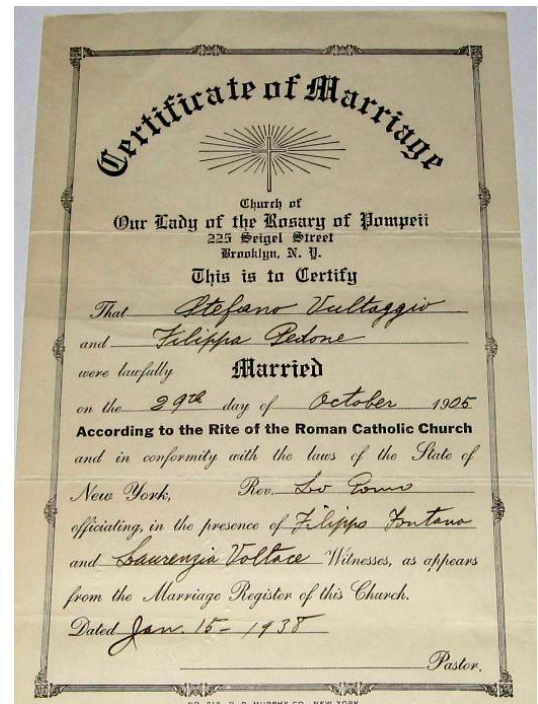 Certificate of Marriage
Church of
Our Lady of the Rosary of Pompeii
225 Seigel Street
Brooklyn, N. Y.
This is to Certify
That Stefano Vultaggio
and Filippa Pedone
were lawfully Married
on the 29th day of October 1905
According to the Rite of the Roman Catholic Church
and in conformity with the laws of the State of
New York, Rev.
officiating, in the presence of Filippo Fontano
and Laurenzia Voltace Witnesses, as appears
from the Marriage Register of this Church.
Dated Jan. 15 - 1938
Pastor.